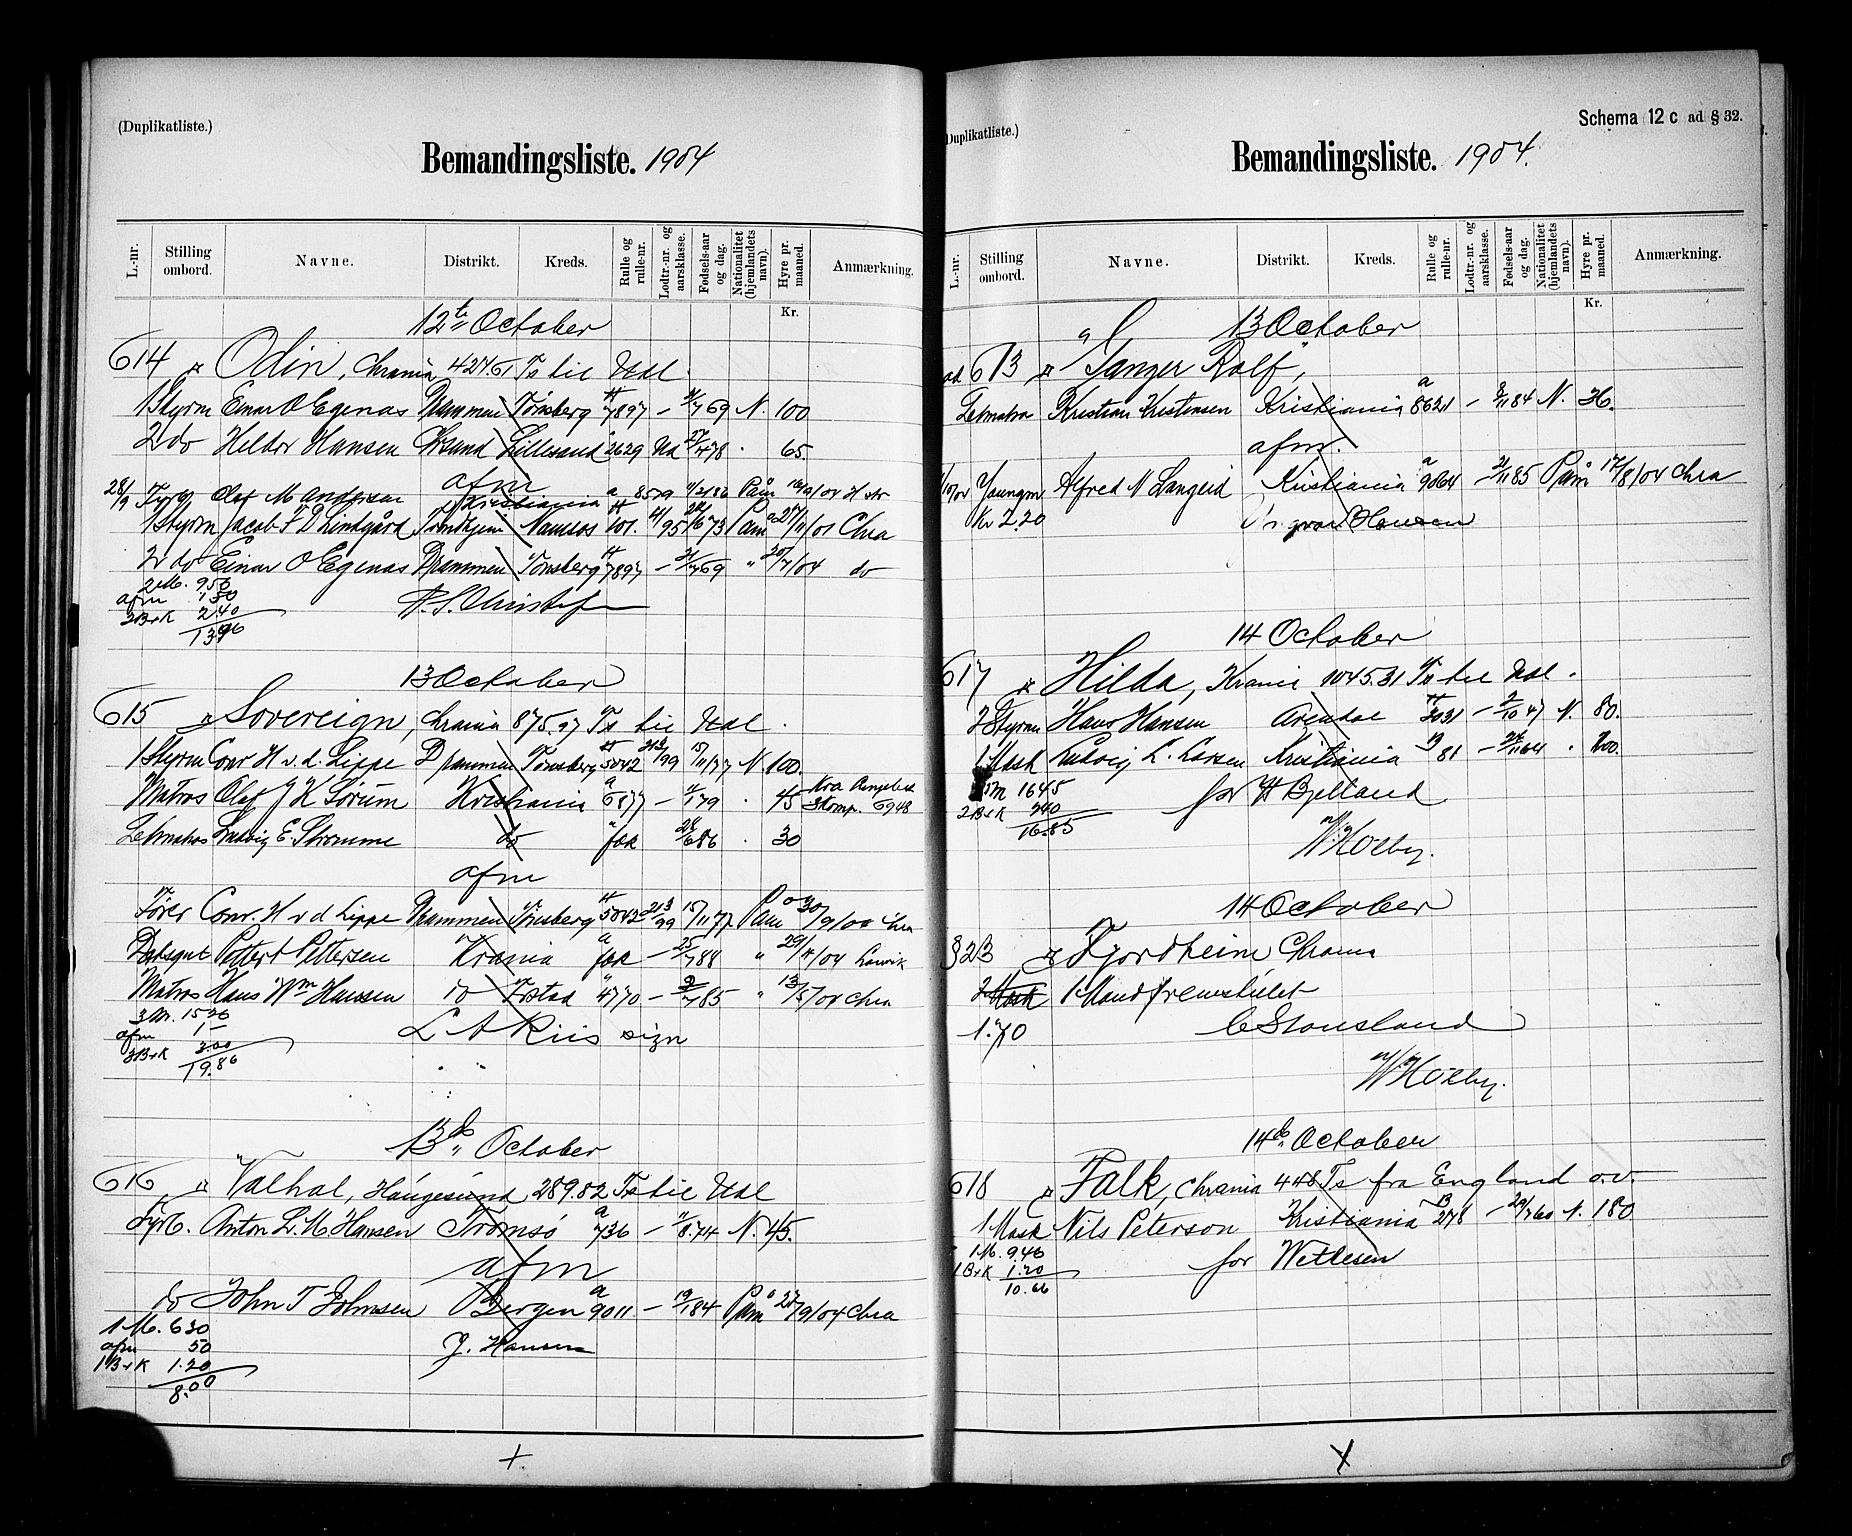 (Duplikatliste.)
Bemandingsliste. 1904
L.-nr. Stilling ombord. Navne. Distrikt. Kreds. Rulle og rulle-nr. Lodtr.-nr. og aarsklasse. Fødsels-aar og dag. Nationalitet (hjemlandets navn). Hyre pr. maaned. Anmærkning.
Kr.
12te October
614 Odin, Chrania 424.61 Ts til Udl
1 Styrm Einar O Egenæs Drammen Tønsberg 7897 – 69 N. 100
2 do Hildor Hansen Chrsand Lillesand 2629 Ud 27/4 78 65.
afm
28/9 Fyrb. Olaf M Andersen Kristiania a 8579 Påm
1 Styrm Jacob F D Lindgård Trondhjem Namsos 101. 95 73 Påm 01 Chra
2 do Einar O Egenæs Drammen Tønsberg 7897 – 69 " 04 do
2 M. 9.50
afm
2B+K 2.40
13
13 October
615 Sovereign, Chrania 875.97 Ts til Udl
1 Styrm Conr H v.d. Lippe Drammen Tønsberg 5042 213/99 15/11 77 N 100.
Matros Olaf J K Sørum Kristiania a 6877 – 79 45
Letmatros Ludvig E. Strømme do fok 86 30
afm
Fører Conr. H v d Lippe Drammen Tønsberg 5042 213/99 15/11 77 Påm 30/9/00 Chra
Pettersen Krania a fok – 25/7 88 " 29/4/04 Larvik
Matros Hans Wm Hanssen do 4770 – 85 " 13/5/04 Chra
3 M.
afm 1 –
3B+K 3.00
19.86
L A Riis sign
13de October
616 Valhal, Haugesund 289.82 Ts til Udl
Fyrb. Anton L. M Hansen Tromsø a 736 – 8.74 N. 45.
afm
do John T Johnsen Bergen a 9011. – 19/1 84 Påm 27/9/04 Chra
1 M. 630
afm 50
1B+K 1.20
8.00
J. Hansen
(Duplikatliste.)
Schema 12 c ad § 32.
Bemandingsliste. 1904.
L.-nr. Stilling ombord. Navne. Distrikt. Kreds. Rulle og rulle-nr. Lodtr.-nr. og aarsklasse. Fødsels-aar og dag. Nationalitet (hjemlandets navn). Hyre pr. maaned. Anmærkning.
Kr.
13 October
ad 613 "Ganger Rolf",
Letmatr Kristian Kristensen Kristiania a 8621 – 84 N. 36.
afm.
Youngm Alfred N Langeid Kristiania a 9864 – 85 Påm 17/8/04 Chra
Kr 2.20
14 October
617 Hilda, Krania 1045.31 Ts til Udl.
2 Styrm Hans Hansen Arendal 3031 – 2/10 47 N. 80.
1 Mask Ludvig L. Larsen Kristiania 81 – 64 " 200.
2 M 1645
2B+K 240
16.85
for H Bjelland
W. Holby.
14 October
§ 23 Fjordheim Chrania
1 Mand fremstillet
1.70
W Holby.
14de October
618 Falk, Chrania 448 Ts fra England o.v.
1 Mask Nils Peterson Kristiania 278 – 29/7 60 N. 180
1 M. 9.46
1B+K 1.20
10.66
for Wettesen